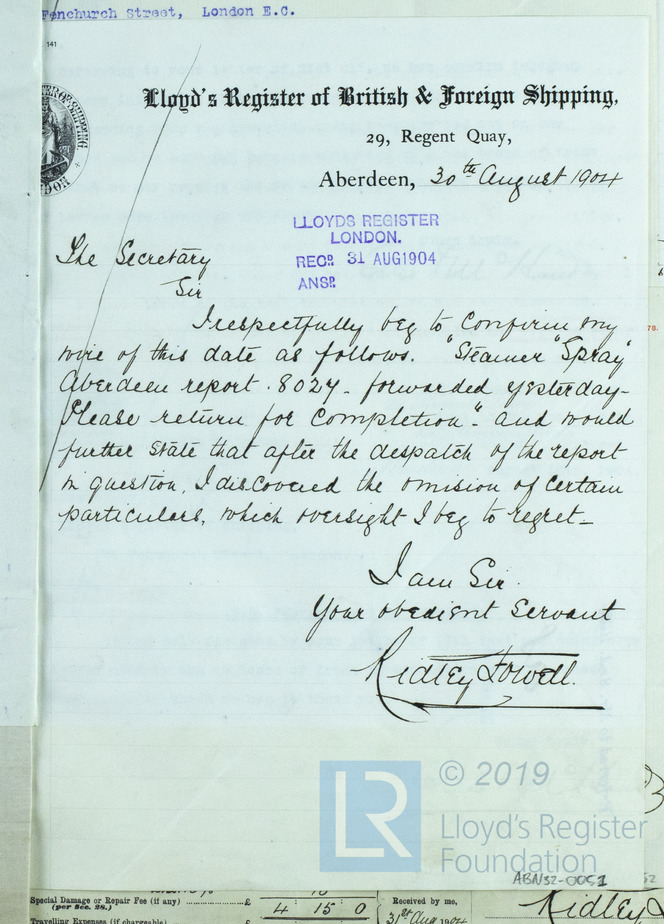 Fenchurch Street, London E.C.
141
Lloyd's Register of British & Foreign Shipping,
29, Regent Quay,
Aberdeen, 30th August 1904
LLOYDS REGISTER
LONDON.
RECD. 31 AUG 1904
ANSD.
The Secretary
Sir
I respectfully beg to confirm my
wire of this date as follows. "Steamer "Spray"
Aberdeen report . 8027 - forwarded yesterday -
Please return for completion". and would
further state that after the despatch of the report
in question, I discovered the omision of certain
particulars, which oversight I beg to regret -
I am Sir.
Your obedient servant
Ridley
78.
© 2019
LR
Lloyd's Register
Foundation
ABN32-0051
Special Damage or Repair Fee (if any) £
(per Sec. 28.)
4 : 15 : 0
Received by me,
Travelling Expenses (if chargeable) £
31st Aug 1904
Ridley